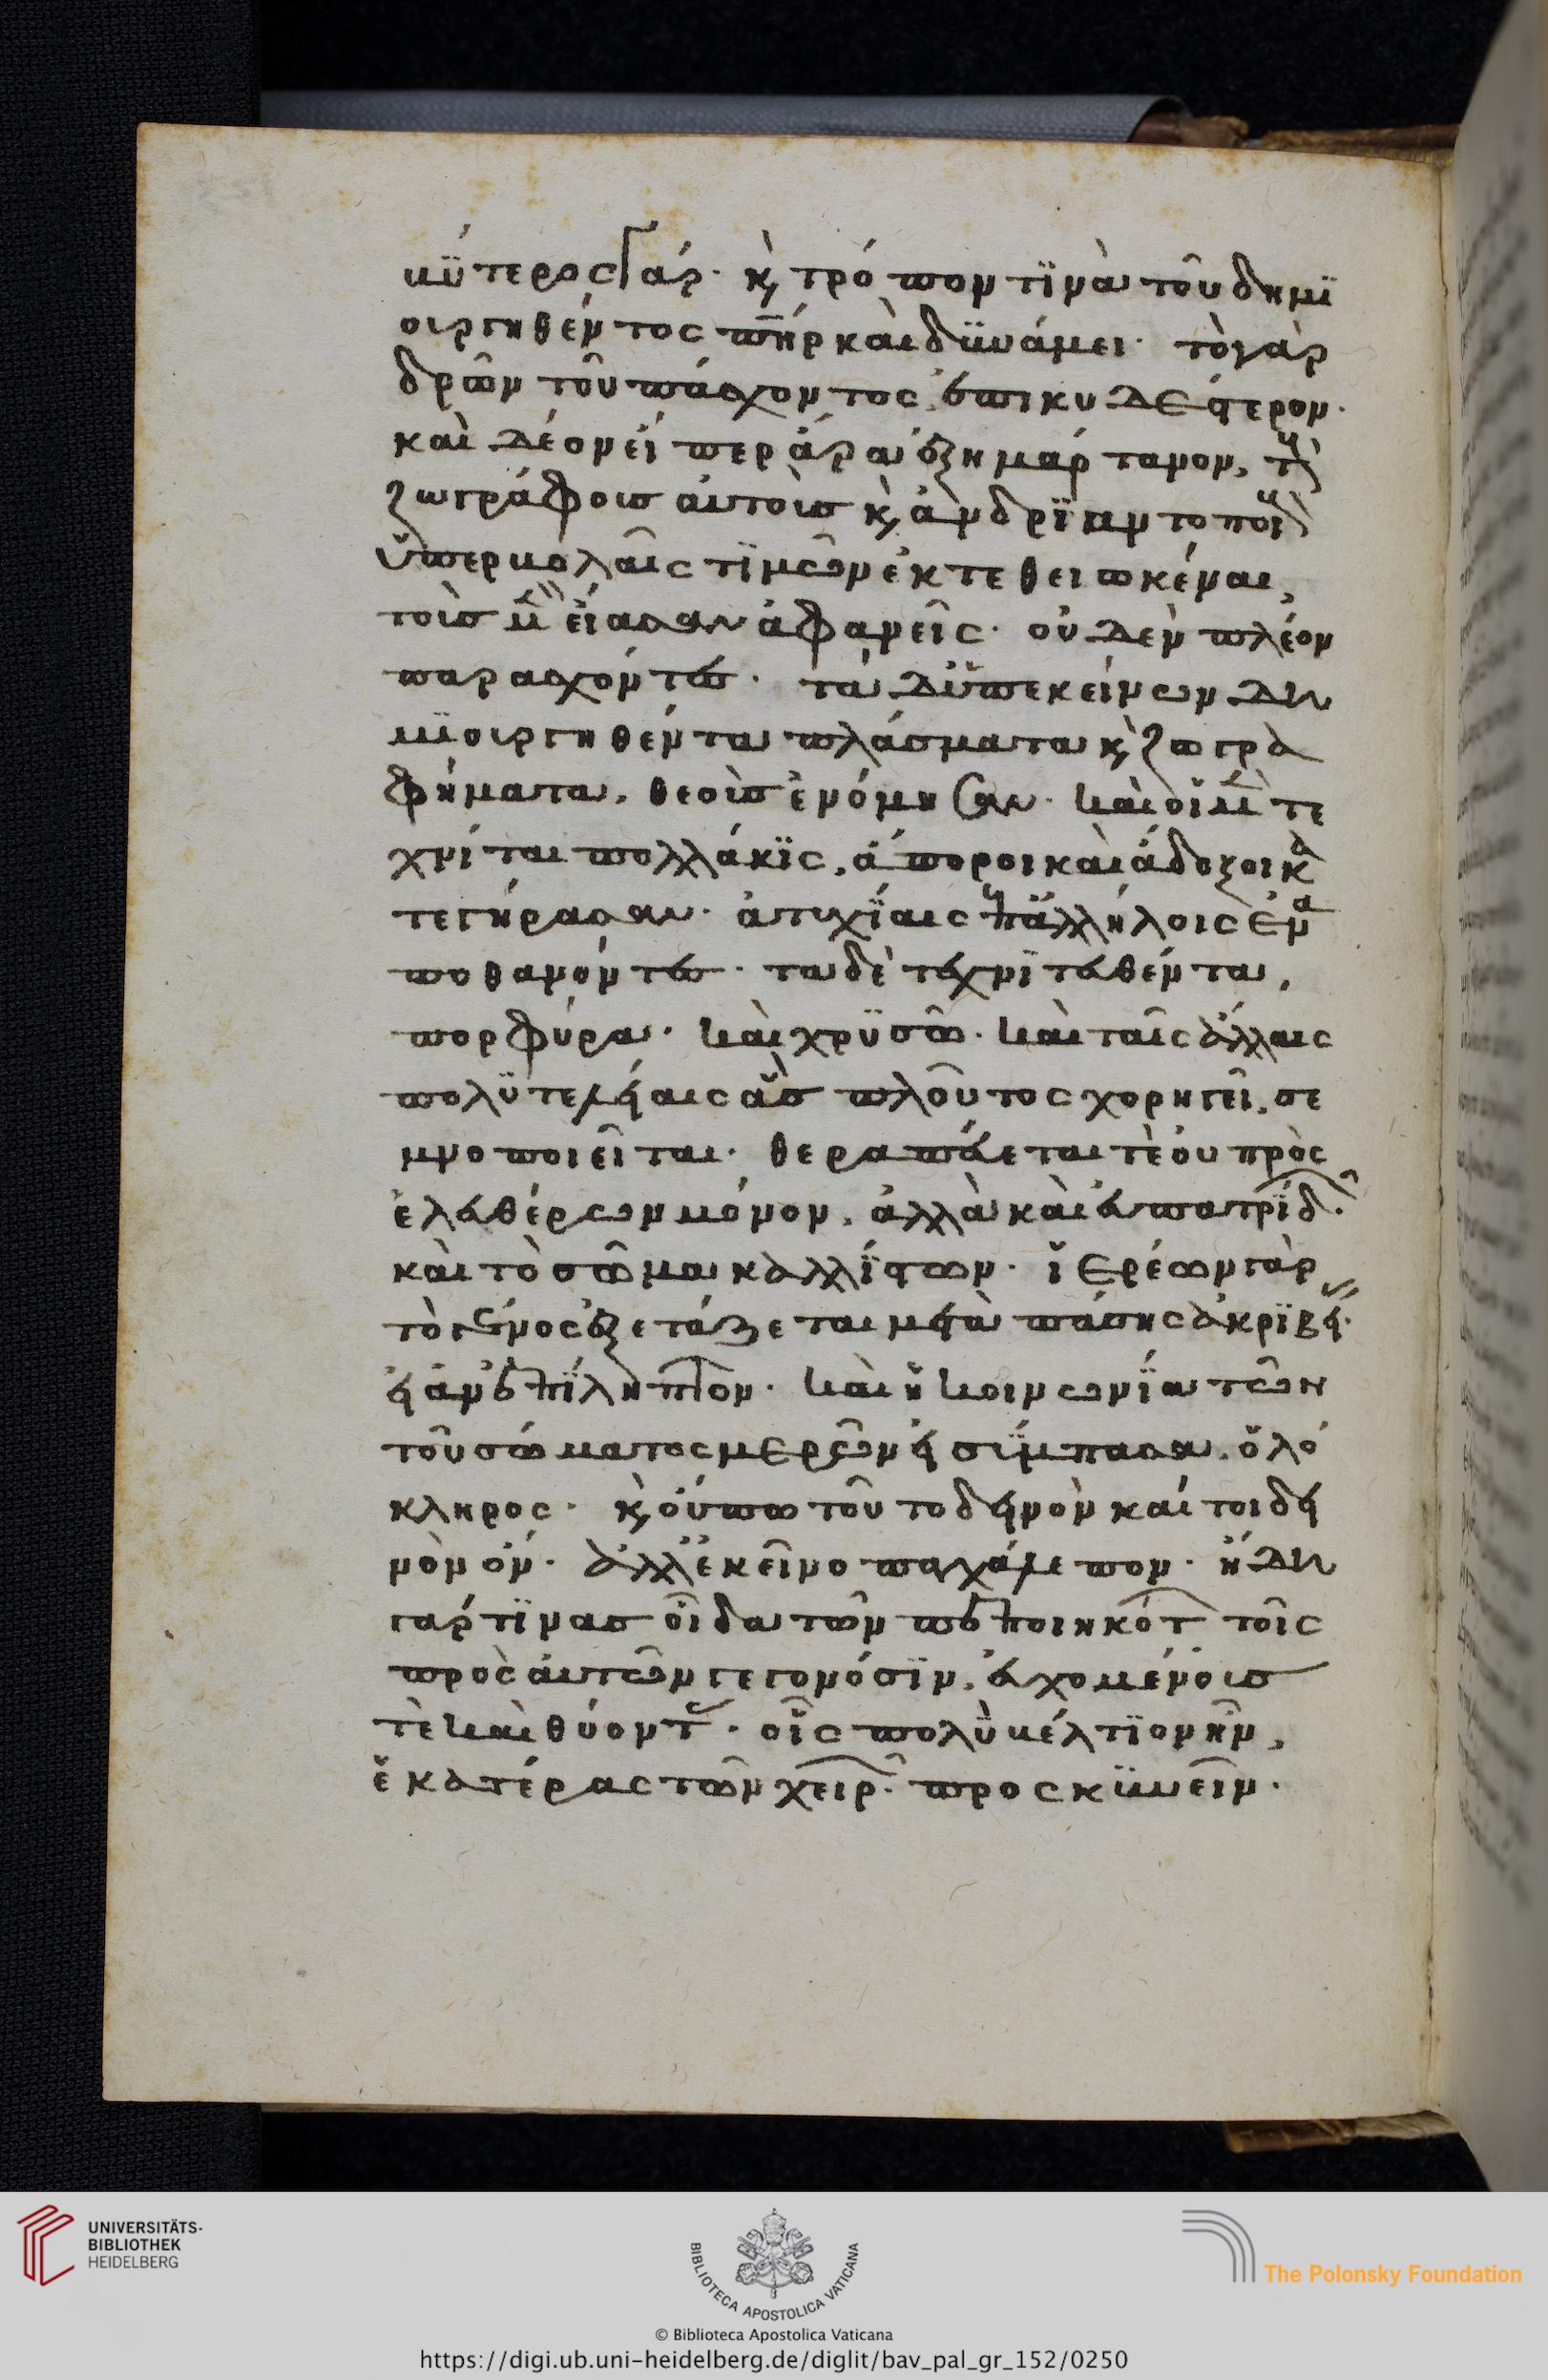 κϋτερος γάρ· κ̀ τρόπον τϊνὰ τοῦ δημϊ
ουργηθέντος π̅η̅ρ καὶ δϋνάμει· τὸ γὰρ
δρῶν τοῦ πάσχοντος, ἐπικυδέστερον·
καὶ δέον εἴπερ ἄρα ἐξημάρτανον, τοὺς
ζωγράφους αὐτοὺς κ̀ ἀνδρϊαντοποιοὺς
ὑπερβολαῖς τϊμῶν ἐκτεθειωκέναι,
τοὺς μὲν εἴασαν ἀφανεῖς· οὐδὲν πλέον
παρασχόντες· τὰ δ' ὑπ' ἐκείνων δη
μϊουργηθέντα πλάσματα κ̀ ζωγρα
φήματα, θεοὺς ἐνόμησαν· καὶ οἱ μὲν τε
χνίται πολλάκϊς, ἄποροι καὶ ἄδοξοι κα
τεγήρασαν· ἀτυχΐαις ἐπαλλήλοις ἐνα
ποθανόντες· τα δὲ τεχνϊτευθέντα,
πορφύρα· καὶ χρϋσῶ· καὶ ταῖς ἄλλαις
πολϋτελείαις ἃς πλοῦτος χορηγεῖ, σε
μνοποιεῖται· θεραπεύεται τὲ οὐ πρὸς
ἐλευθέρων μόνον, ἀλλὰ καὶ εὐπατρϊδῶν·
καὶ τὸ σῶμα καλλΐστων· ἱερέων γὰρ
τὸ γένος ἐξετάζεται μετὰ πάσης ἀκρϊβείας·
εἰ ἀνεπΐληπτον· καὶ ἡ κοινωνΐα τῶν
τοῦ σώματος μερῶν εἰ σύμπασα, ὁλό
κληρος· κ̀ οὔπω τοῦτο δεινὸν καίτοι δει
νὸν ὄν· ἀλλ' ἐκεῖνο παγχάλεπον· ἤδη
γάρ τϊνας οἶδα τῶν πεποιηκότων τοῖς
πρὸς αὐτῶν γεγονόσϊν, εὐχομένους
τὲ καὶ θύοντας· οἷς πολὺ βέλτϊον ἦν,
ἑκατέρας τῶν χειρῶν· προσκϋνεῖν·
UNIVERSITÄTS-
BIBLIOTHEK
HEIDELBERG
BIBLIOTECA APOSTOLICA VATICANA
The Polonsky Foundation
© Biblioteca Apostolica Vaticana
https://digi.ub.uni-heidelberg.de/diglit/bav_pal_gr_152/0250